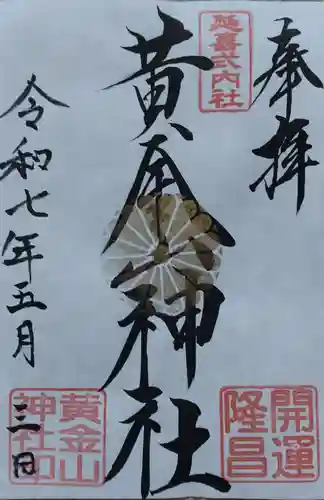 奉拝
延喜式内社
黄金山神社
開運
隆昌
黄金山
神社印
令和七年五月三日